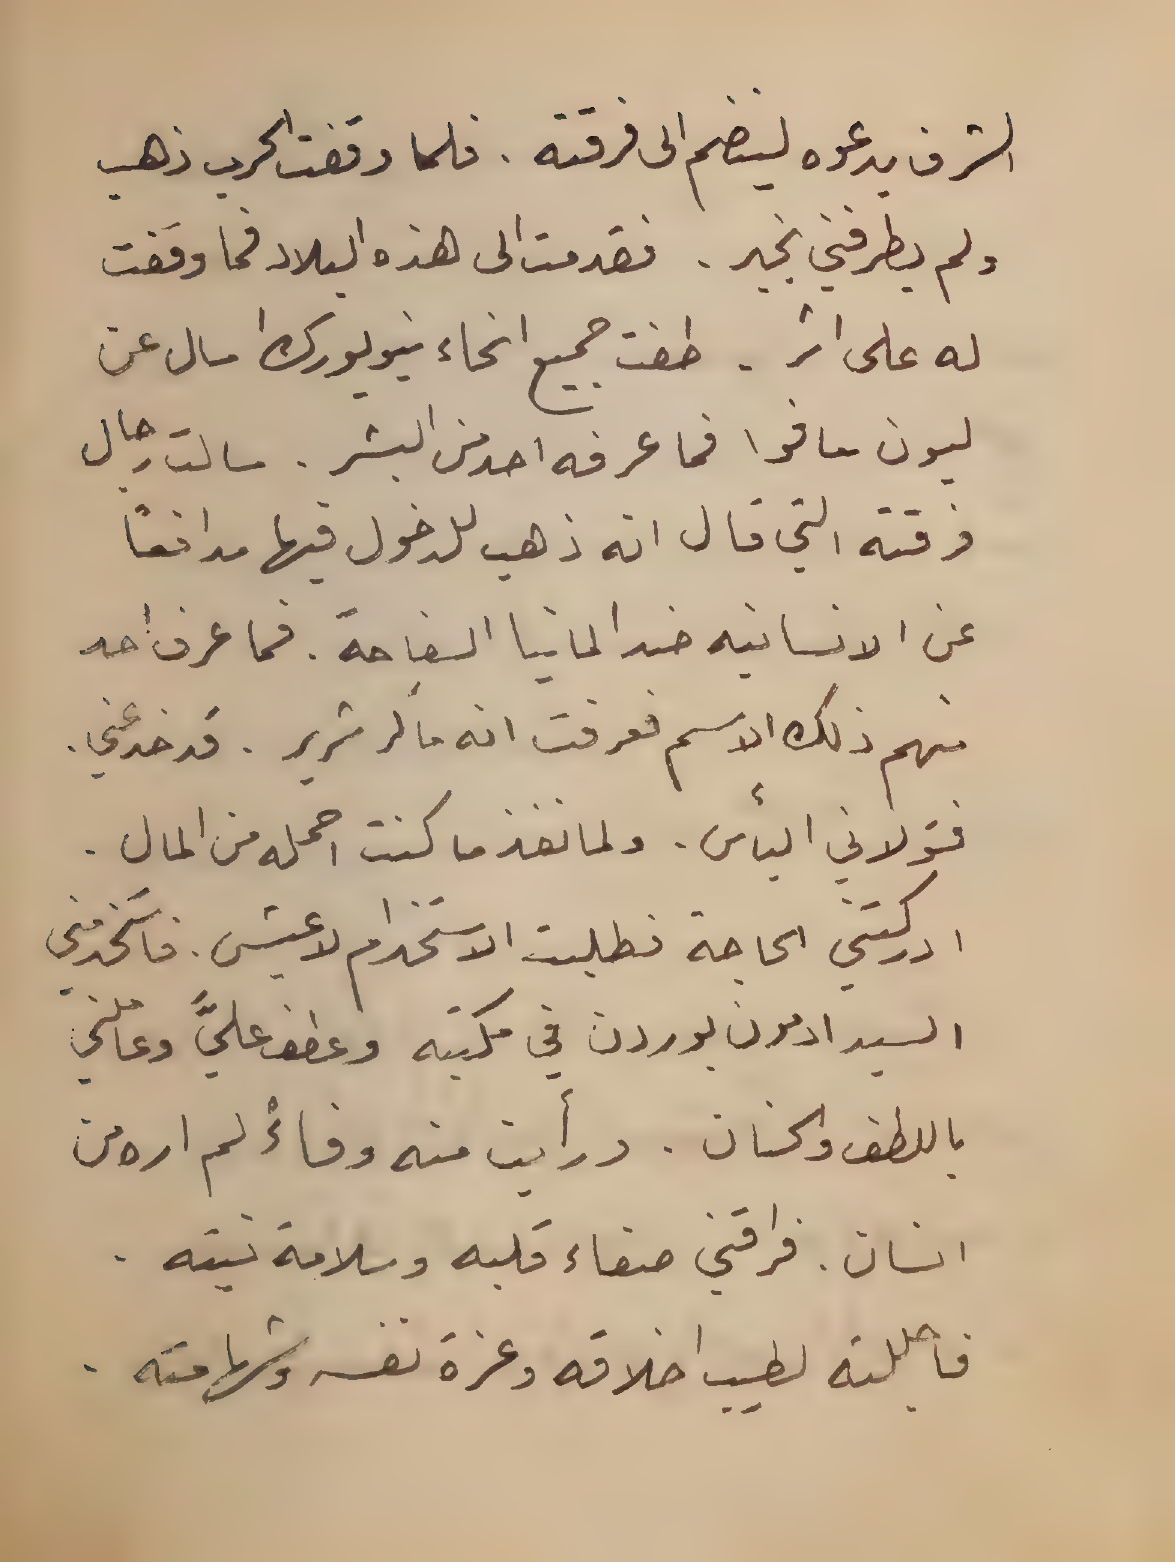 الشرف يدعوه لينضم الى فرقته . فلما وقفت الحرب ذهب
ولم يطرفني بخبر . فقدمت الى هذه البلاد فما وقفت
له على اثر . طفت جميع انحاء نيويورك اسال عن
ليون سافوا فما عرفه احد من البشر . سالت رجال
فرقته التي قال انه ذهب للدخول فيها مدافعًا
عن الانسانيه ضد المانيا السفاحة . فما عرف احد
منهم ذلك الاسم فعرفت انه ماكر شرير . قد خدعني .
فتولاني اليأس . ولما نفذ ما كنت احمله من المال .
ادركتني الحاجة فطلبت الاستخدام لاعيش . فاستخدمني
السيد ادمون بوردن في مكتبه وعطف عليَّ وعاملني
باللطف والحنان . ورأيت منه وفاءً لم اره من
انسان . فراقني صفاء قلبه وسلامة نيته .
فاجللته لطيب اخلاقه وعزة نفسه وشهامته .